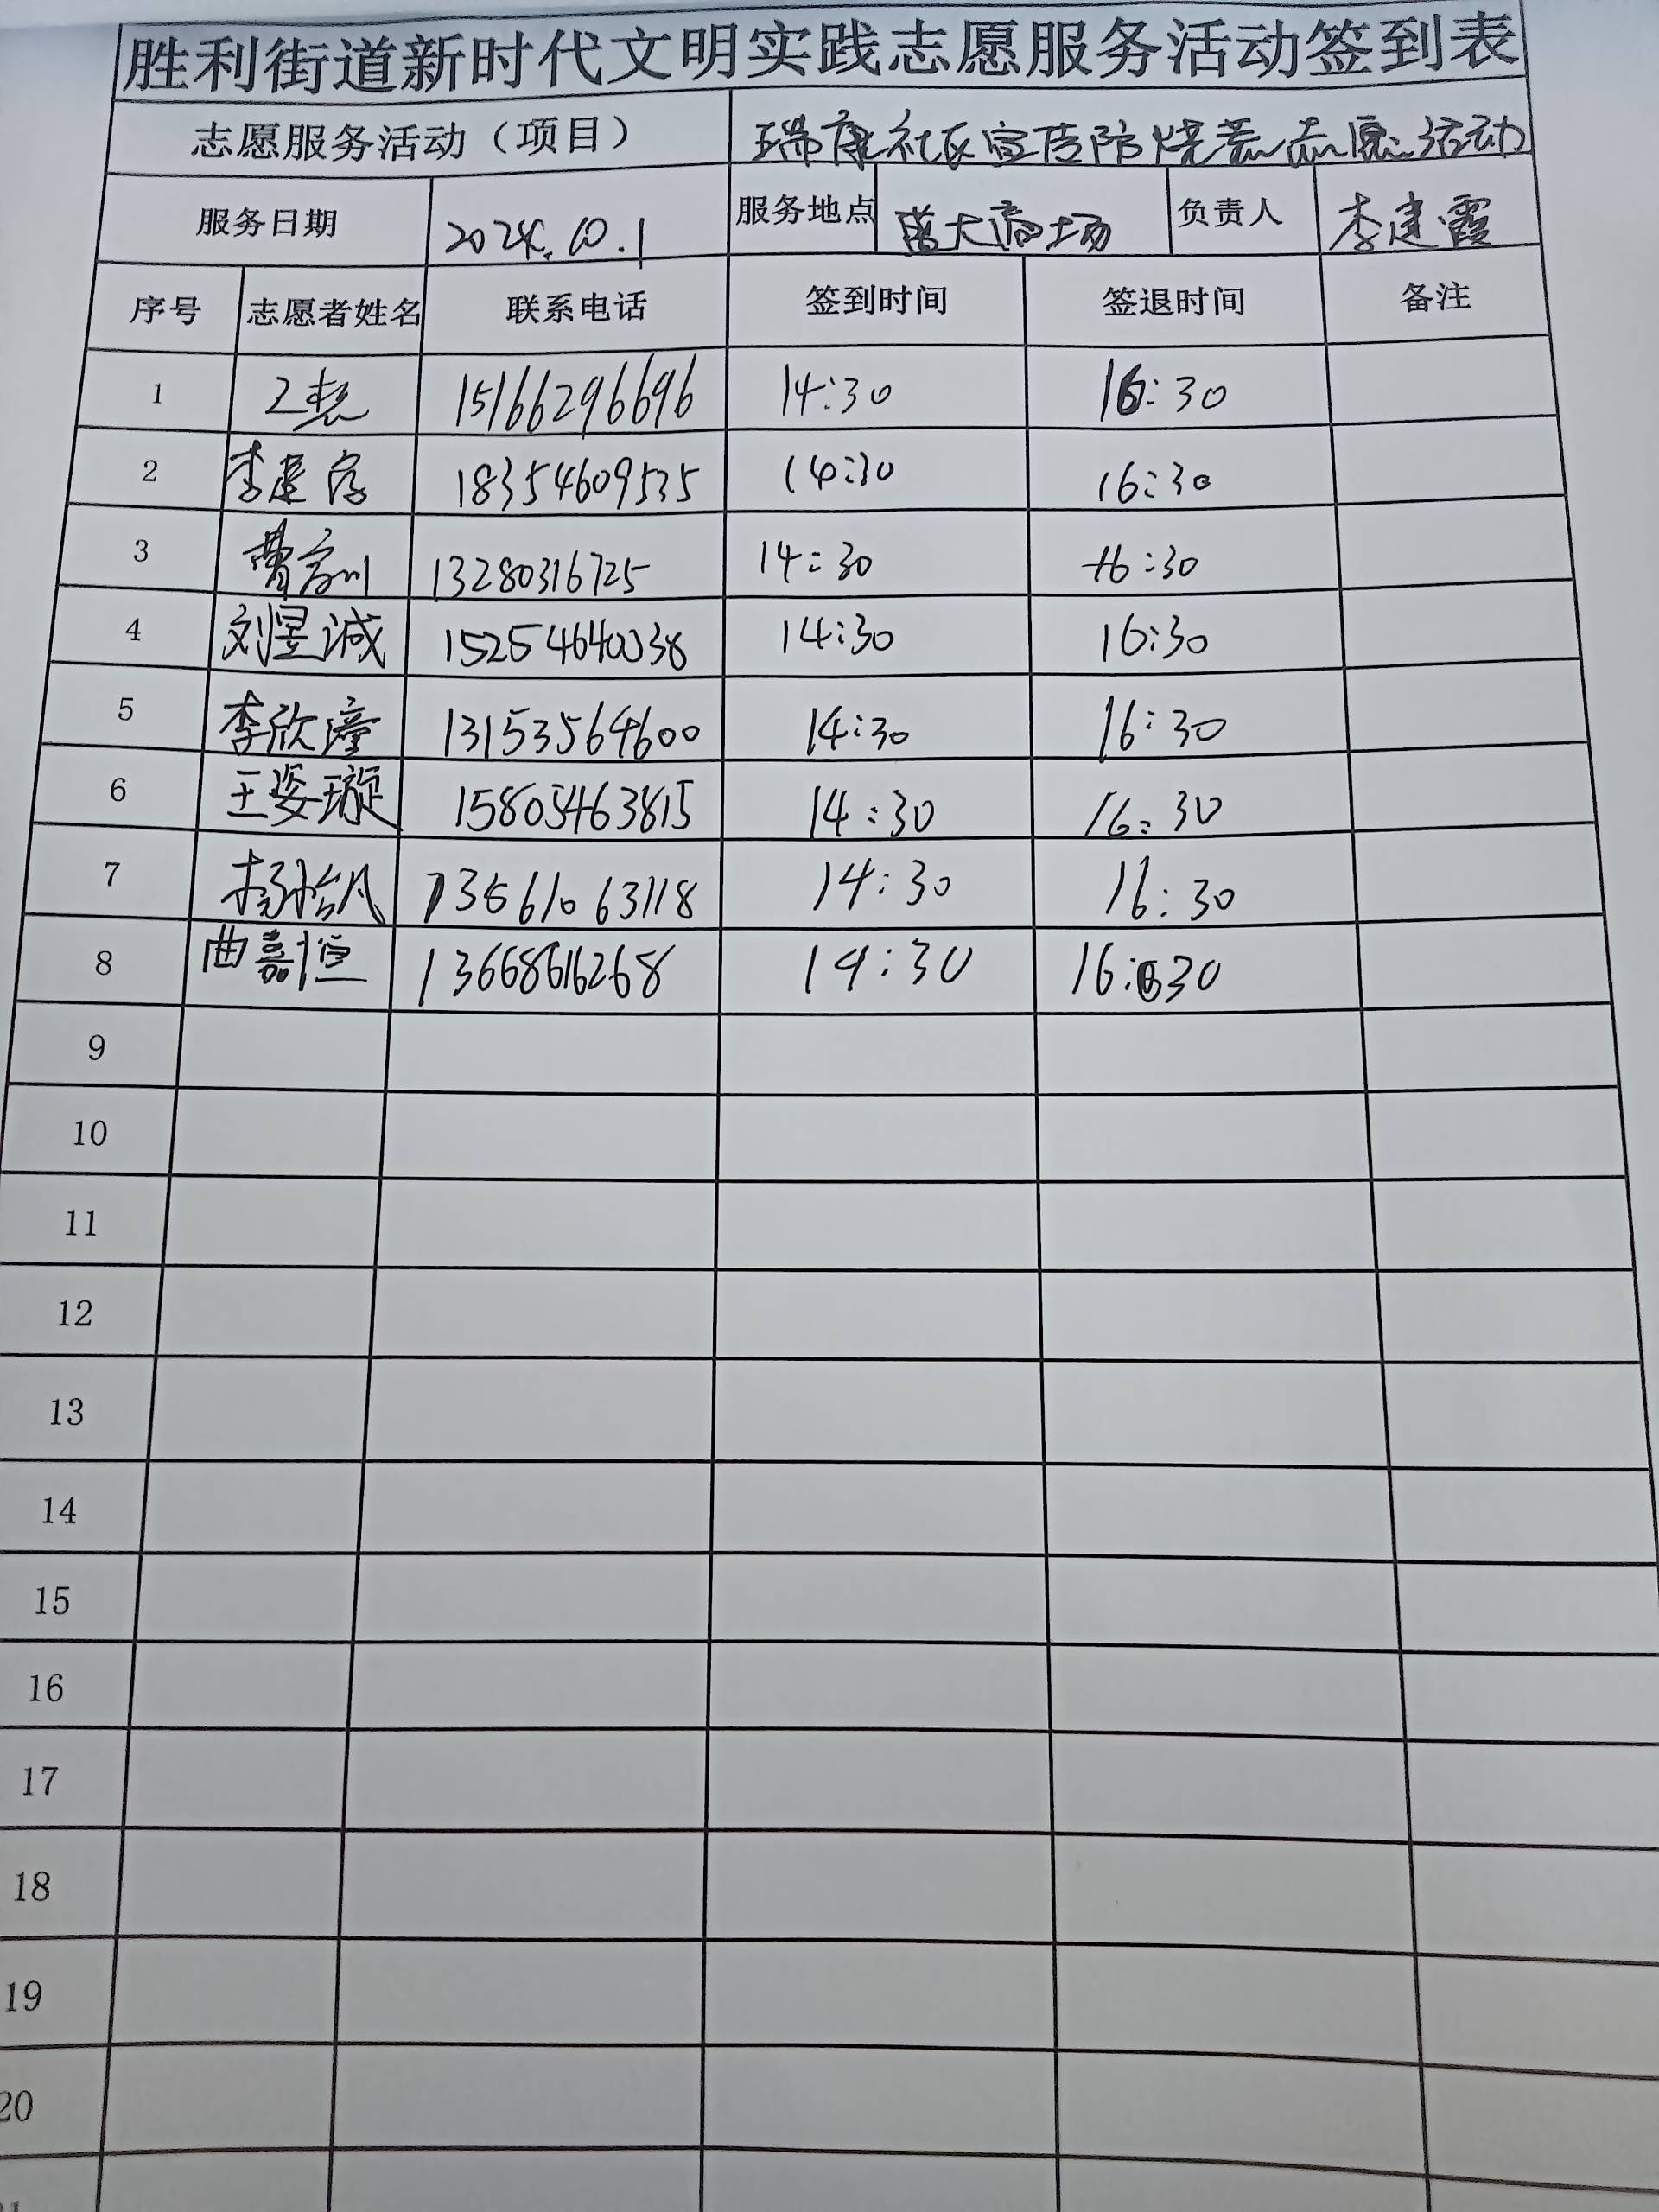 胜利街道新时代文明实践志愿服务活动签到表
志愿服务活动（项目） 瑞康社区宣传防烧荒志愿活动
服务日期 2024.10.1 服务地点 大商场 负责人 李建霞
序号 志愿者姓名 联系电话 签到时间 签退时间 备注
1 15166296696 14:30 16:30
2 李建 18354609535 14:30 16:30
3 曹 13280316725 14:30 16:30
4 刘昱诚 15254640038 14:30 16:30
5 李欣潼 13153564600 14:30 16:30
6 王姿璇 15805463815 14:30 16:30
7 杨怡凡 13561063118 14:30 16:30
8 曲嘉恒 13668616268 14:30 16:30
9
10
11
12
13
14
15
16
17
18
19
20